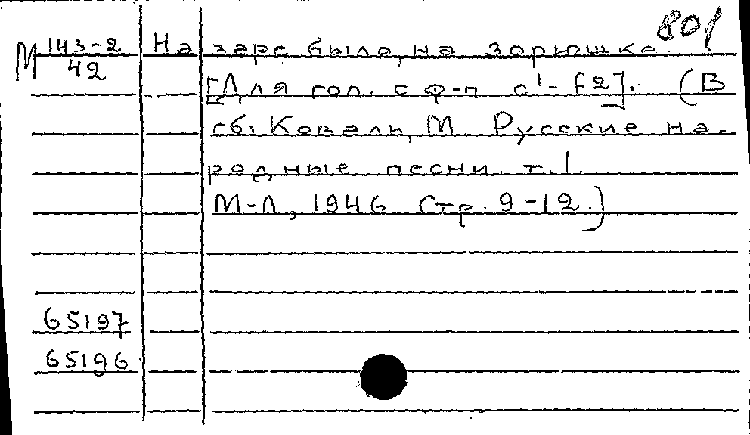 801
М 143-2/42 На заре было, на зорюшке
[Для гол. с ф-п c¹- f2]. (В
сб: Коваль, М. Русские на-
родные песни т.1
М-Л, 1946 Стр. 9-12.)
65197
65196